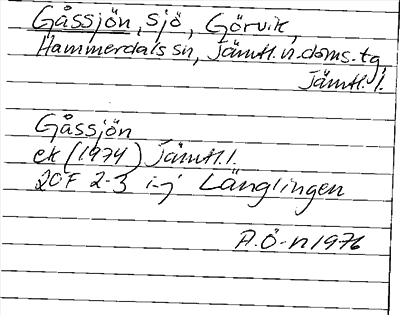 Gåssjön, sjö, Görvik,
Hammerdals sn, Jämtl.n.doms.tg
Jämtl.l.
Gåssjön
ek (1974) Jämtl.l.
20F 2-3 i-j Länglingen
A.Ö-n 1976